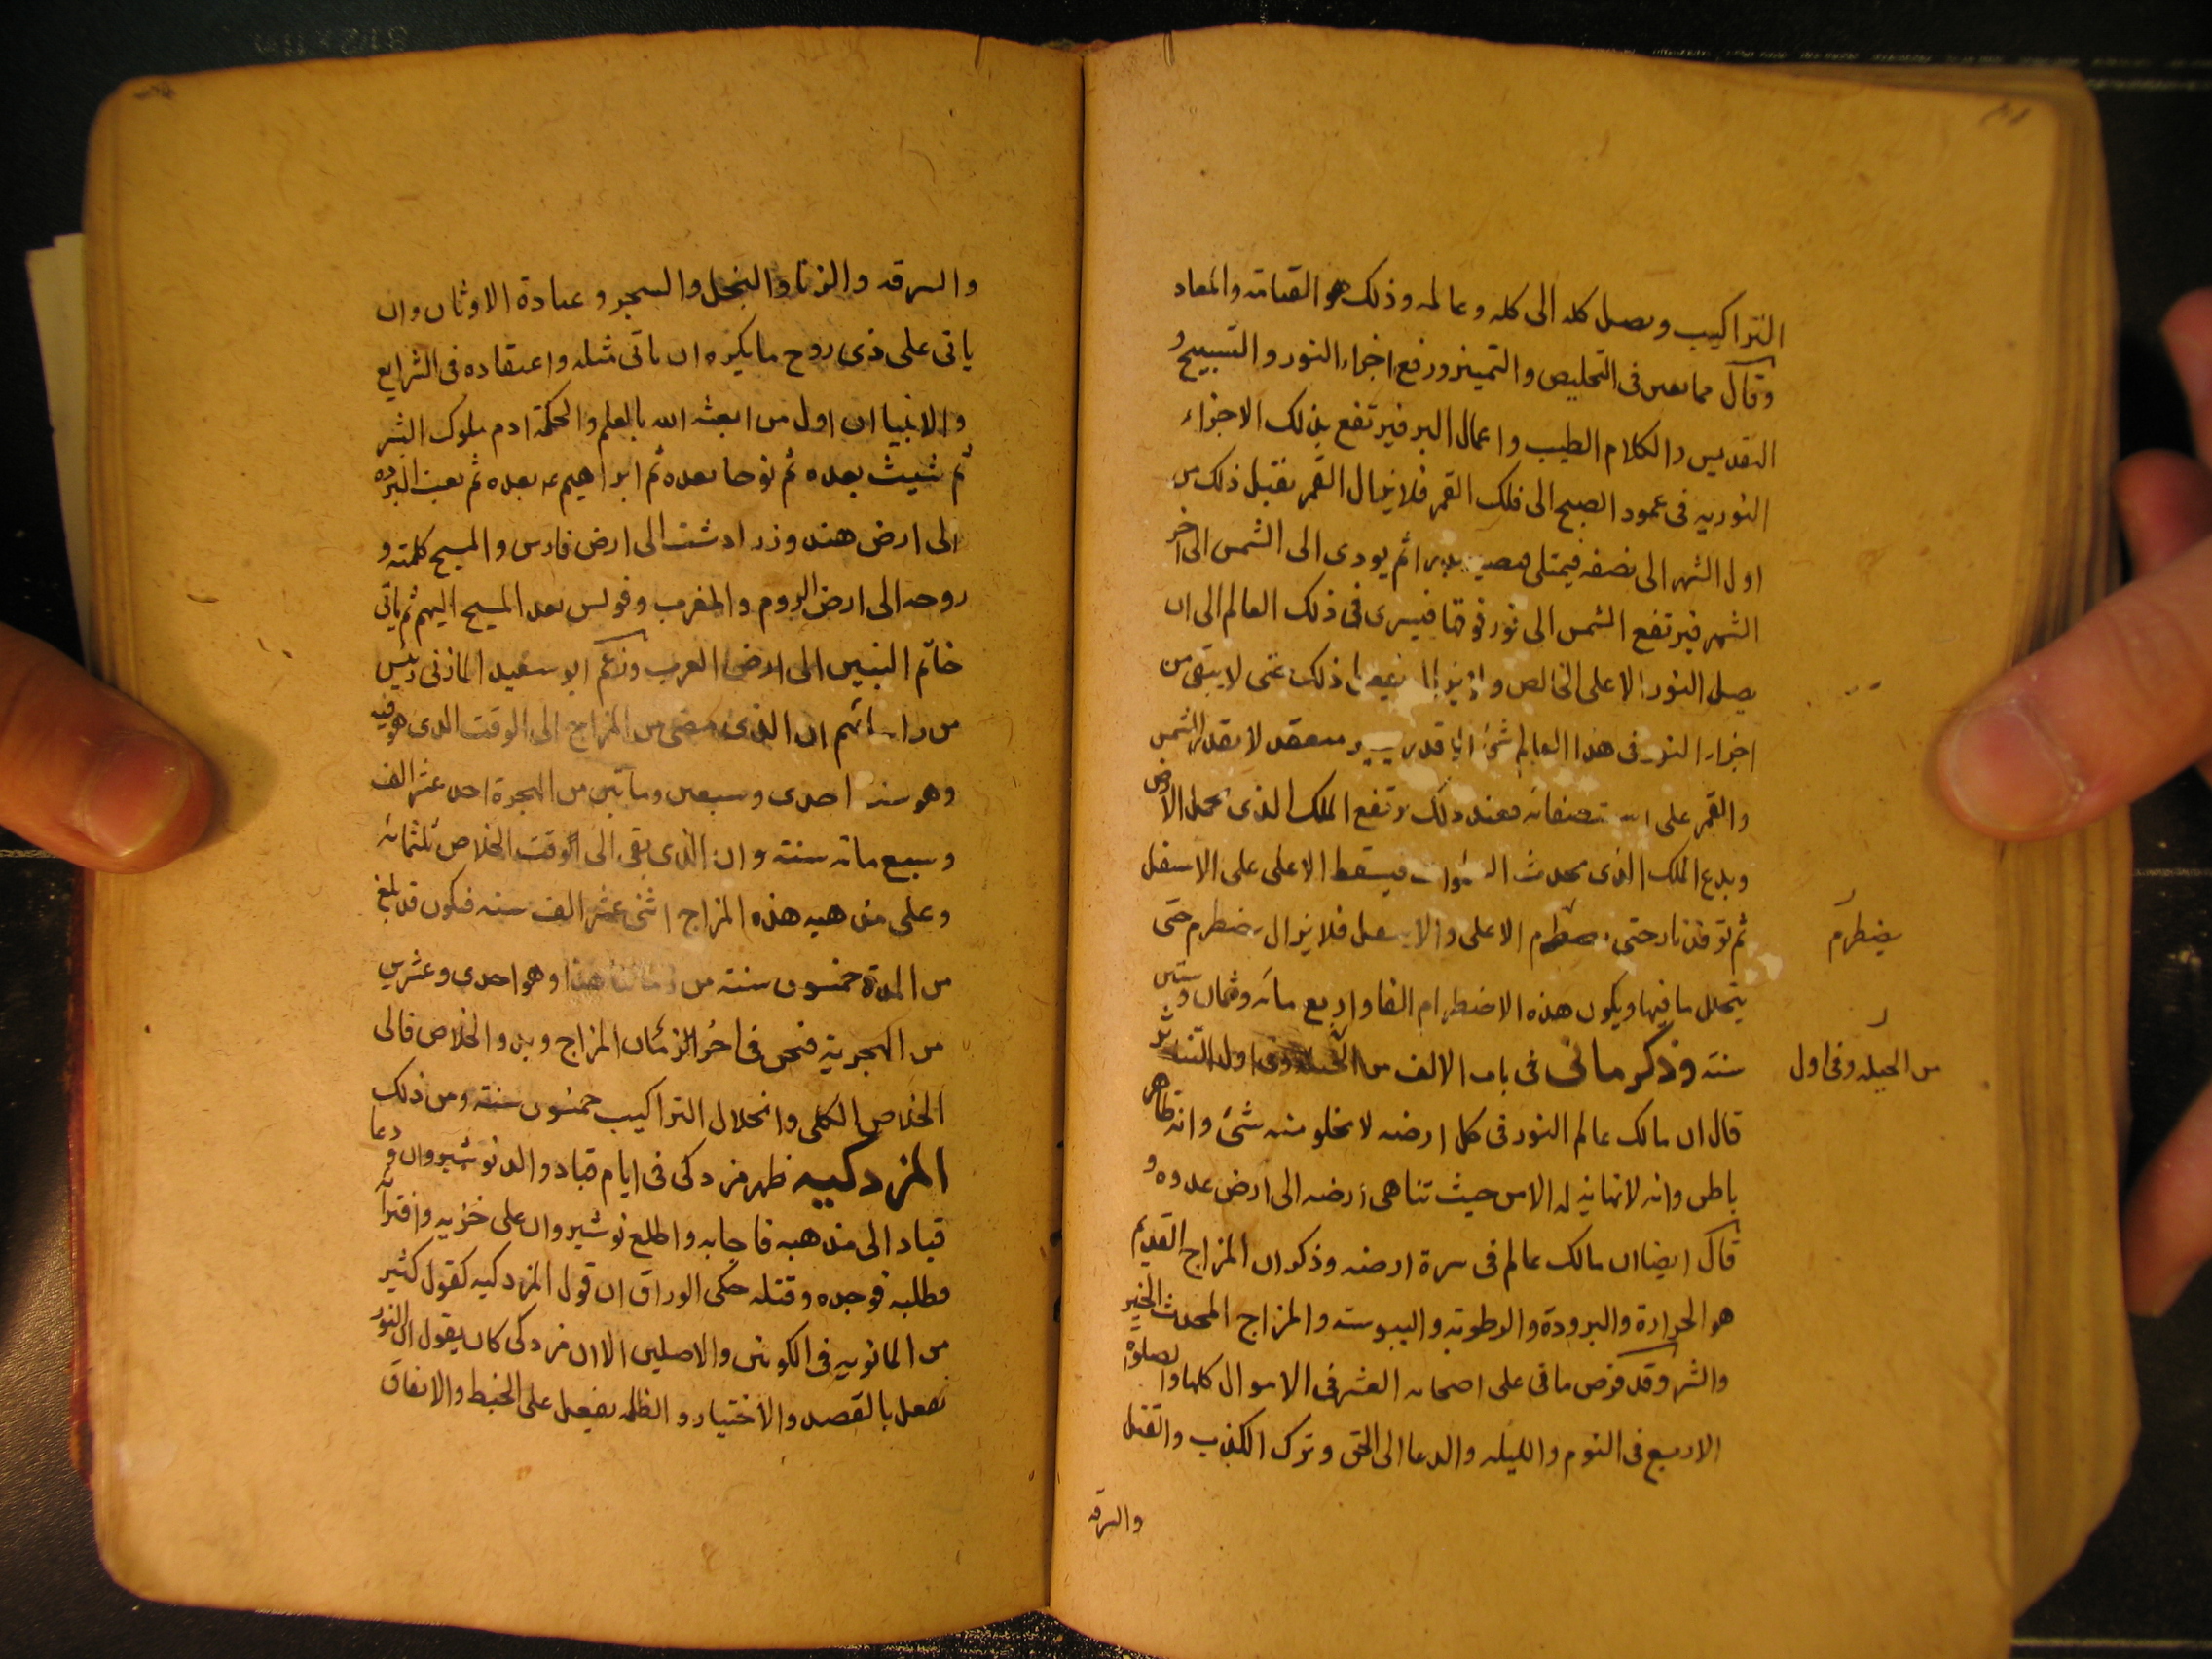 التراكيب ويصل كله الى كله وعالمه وذلك هو القيامة والمعاد
وقال مما يعين فى التخليص والتمييز ورفع اجزاء النور والتسبيح و
التقديس والكلام الطيب واعمال البر فيرتفع بذلك الاجزاء
النوريه فى عمود الصبح الى فلك القمر فلا يزال القمر يقبل ذلك من
اول الشهر الى نصفه فيمتلى فيصير بدرا ثم يودى الى الشمس الى اخر
الشهر فيرتفع الشمس الى نور فوقها فيسرى فى ذلك العالم الى ان
يصل النور الاعلى الخالص و ذلك حتى لا يبقى من
اجزاء النور فى هذا العالم شئ الا قدر يسير منعقد لا يقدر الشمس
والقمر على استصفائه فعند ذلك يرتفع الملك الذى يحمل الارض
ويدع الملك الذى يحدث السموات فيسقط الاعلى على الاسفل
ثم توقد نار حتى يضطرم الاعلى والاسفل فلا يزال يضطرم حتى
يضطرم
يتحلل ما فيها ويكون هذه الاضطرام الفا واربع مائة وثمان وستين
سنة وذكر مانى فى باب الالف من الجبلة وفى اول الشابر
من الجبله وفى اول
قال ان مالك عالم النور فى كل ارضه لا يخلو منه شئ وانه ظاهر
باطن وانه لا نهاية له الا من حيث تناهى ارضه الى ارض عدوه و
قال ايضا ان مالك عالم فى سرة ارضه وذكر ان المزاج القديم
هو الحرارة والبرودة والرطوبة واليبوسته والمزاج المحدث الخير
والشر وقد فرض مانى على اصحابه العشر فى الاموال كلها والصلوة
الاربع فى اليوم والليله والدعا الى الحق وترك الكذب والقتل
والسرقه
والسرقه والزنا والبخل والسحر وعبادة الاوثان وان
ياتى على ذى روح ما يكره ان ياتى مثله واعتقاده فى الشرايع
والانبيا ان اول من ابعثه الله بالعلم والحكمة ادم بلوك البشر
ثم شيث بعده ثم نوحا بعده ثم ابراهيم عه بعده ثم بعث البرده
الى ارض هند وزرادشت الى ارض فارس والمسيح كلمته و
روحه الى ارض الروم والمغرب وفولس بعد المسيح اليهم ثم ياتى
خاتم النبيين الى ارض العرب وزعم ابو سعيد الماذنى رئيس
من راسائهم ان الذى مضى من المزاج الى الوقت الذى هو فيه
وهو سنه احدى وسبعين ومايتين من الهجرة احد عشر الف
وسبع مائه سنة وان الذى بقى الى الوقت الخلاص ثلثمائه
وعلى مذهبه هذه المزاج اثنى عشر الف سنه فيكون قد بلغ
من المدة خمسون سنة من زماننا هذا وهو احدى وعشرين
من الهجرية فنحن فى اخر الزمان المزاج وبدو الخلاص فالى
الخلاص الكلى وانحلال التراكيب خمسون سنة ومن ذلك
المزدكيه ظهر مزدكى فى ايام قباد والد نوشيروان و دعا
قباد الى مذهبه فاجابه واطلع نوشيروان على خزيه وافترائه
فطلبه فوجده وقتله حكى الوراق ان قول المزدكيه كقول كثير
من المانويه فى الكونين والاصلين الا ان مزدكى كان يقول ان النور
يفعل بالقصد والاختيار والظلمه يفعل على الخبط والاتفاق